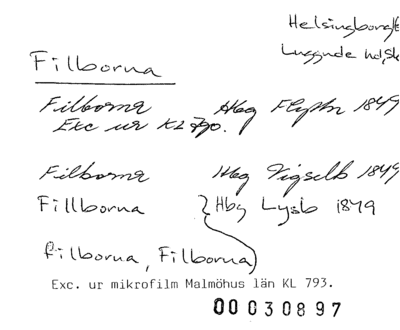 Helsingborg
Luggude hd, Sk
Filborna
Filborna Hbg Flyttn 1849
Exc ur KL 790.
Filborna Hbg Vigselb 1849
Fillborna Hbg Lysb 1849
filborna, Filborna
Exc. ur mikrofilm Malmöhus län KL 793.
00030897